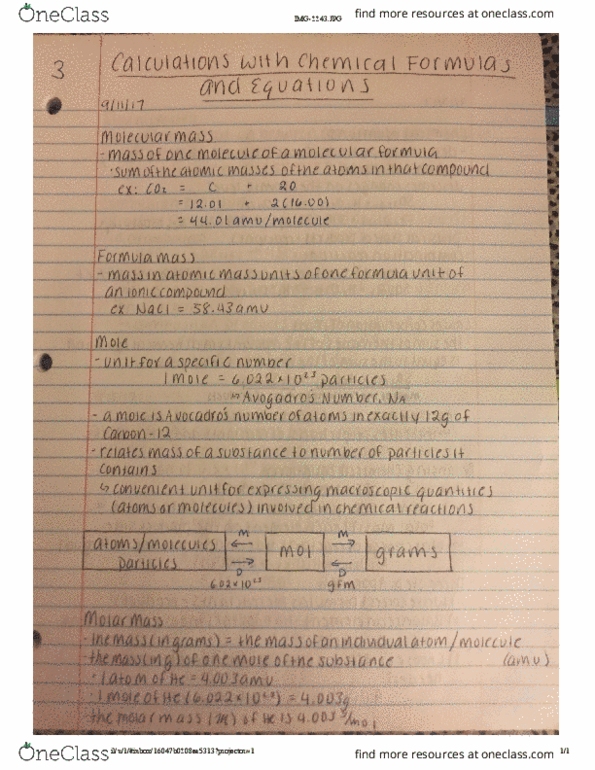 OneClass
IMG-1143.JPG
find more resources at oneclass.com
3
Calculations with Chemical Formulas
and Equations
9/11/17
Molecular mass
- mass of one molecule of a molecular formula
· sum of the atomic masses of the atoms in that compound
ex: CO2 = C + 2O
= 12.01 + 2(16.00)
= 44.01 amu/molecule
Formula mass
- mass in atomic mass units of one formula unit of
an ionic compound
ex NaCl = 58.43 amu
Mole
- unit for a specific number
1 mole = 6.022 × 10²³ particles
↳ Avogadro's Number, NA
- a mole is Avocadro's number of atoms in exactly 12g of
Carbon-12
- relates mass of a substance to number of particles it
contains
↳ convenient unit for expressing macroscopic quantities
(atoms or molecules) involved in chemical reactions
atoms/molecules
particles
M
D
6.02 × 10²³
mol
M
D
gfm
grams
Molar Mass
- the mass (in grams) = the mass of an individual atom/molecule
(amu)
- the mass (in g) of one mole of the substance
· 1 atom of He = 4.003 amu
· 1 mole of He (6.022 × 10²³) = 4.003g
the molar mass (M) of He is 4.003 g/mol
OneClass
1/1
find more resources at oneclass.com